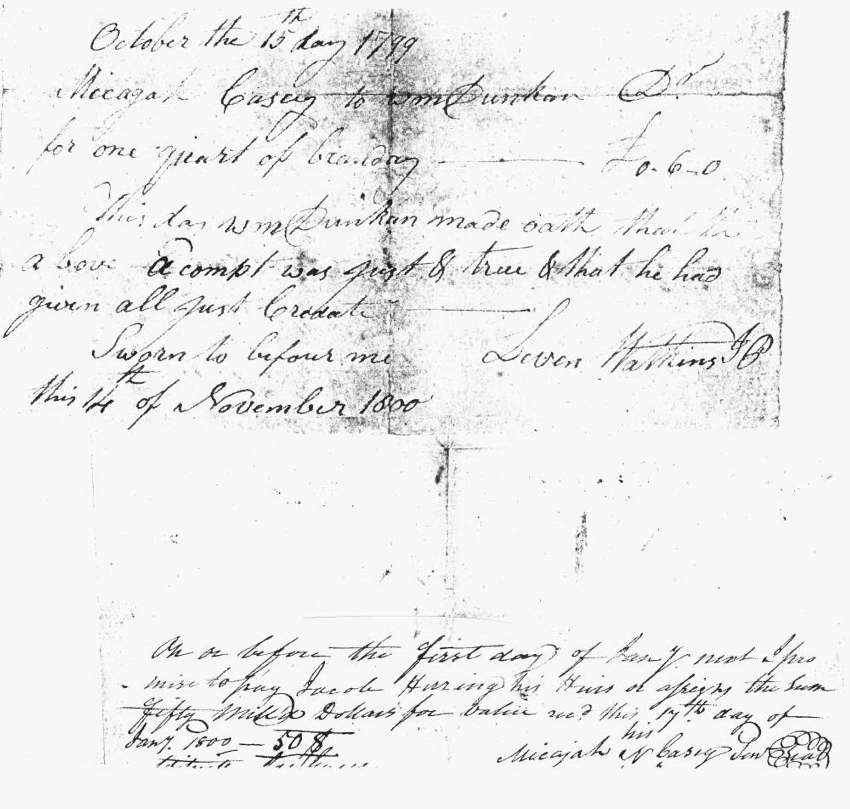 October the 15th day 1799
Micajah Casey to wm Dunkan Dr
for one quart of brandy — £0-6-0
This day wm Dunkan made oath that the
above Acompt was just & true & that he had
given all just Credate
Sworn to before me Leven Watkins JP
this 14th of November 1800
On or before the first day of Jany next I pro
mise to pay Jacob Hering his Heirs or assigns the Sum
fifty Milld Dollars for value recd this 17th day of
Jany. 1800 — 50 $
his
Micajah N Casey Senr Seal